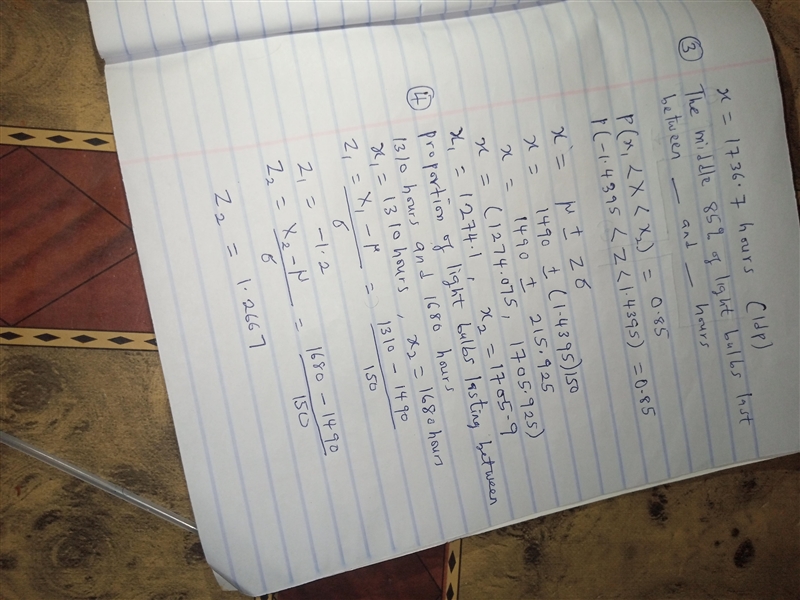 x = 1736.7 hours (1dp)
③ The middle 85% of light bulbs last
between __ and __ hours
P(x₁ < X < x₂) = 0.85
P(-1.4395 < Z < 1.4395) = 0.85
x = μ ± zσ
x = 1490 ± (1.4395)150
x = 1490 ± 215.925
x = (1274.075, 1705.925)
x₁ = 1274.1, x₂ = 1705.9
④ Proportion of light bulbs lasting between
1310 hours and 1680 hours
x₁ = 1310 hours, x₂ = 1680 hours
Z₁ = (x₁ - μ)/σ = (1310 - 1490)/150
Z₁ = -1.2
Z₂ = (x₂ - μ)/σ = (1680 - 1490)/150
Z₂ = 1.2667